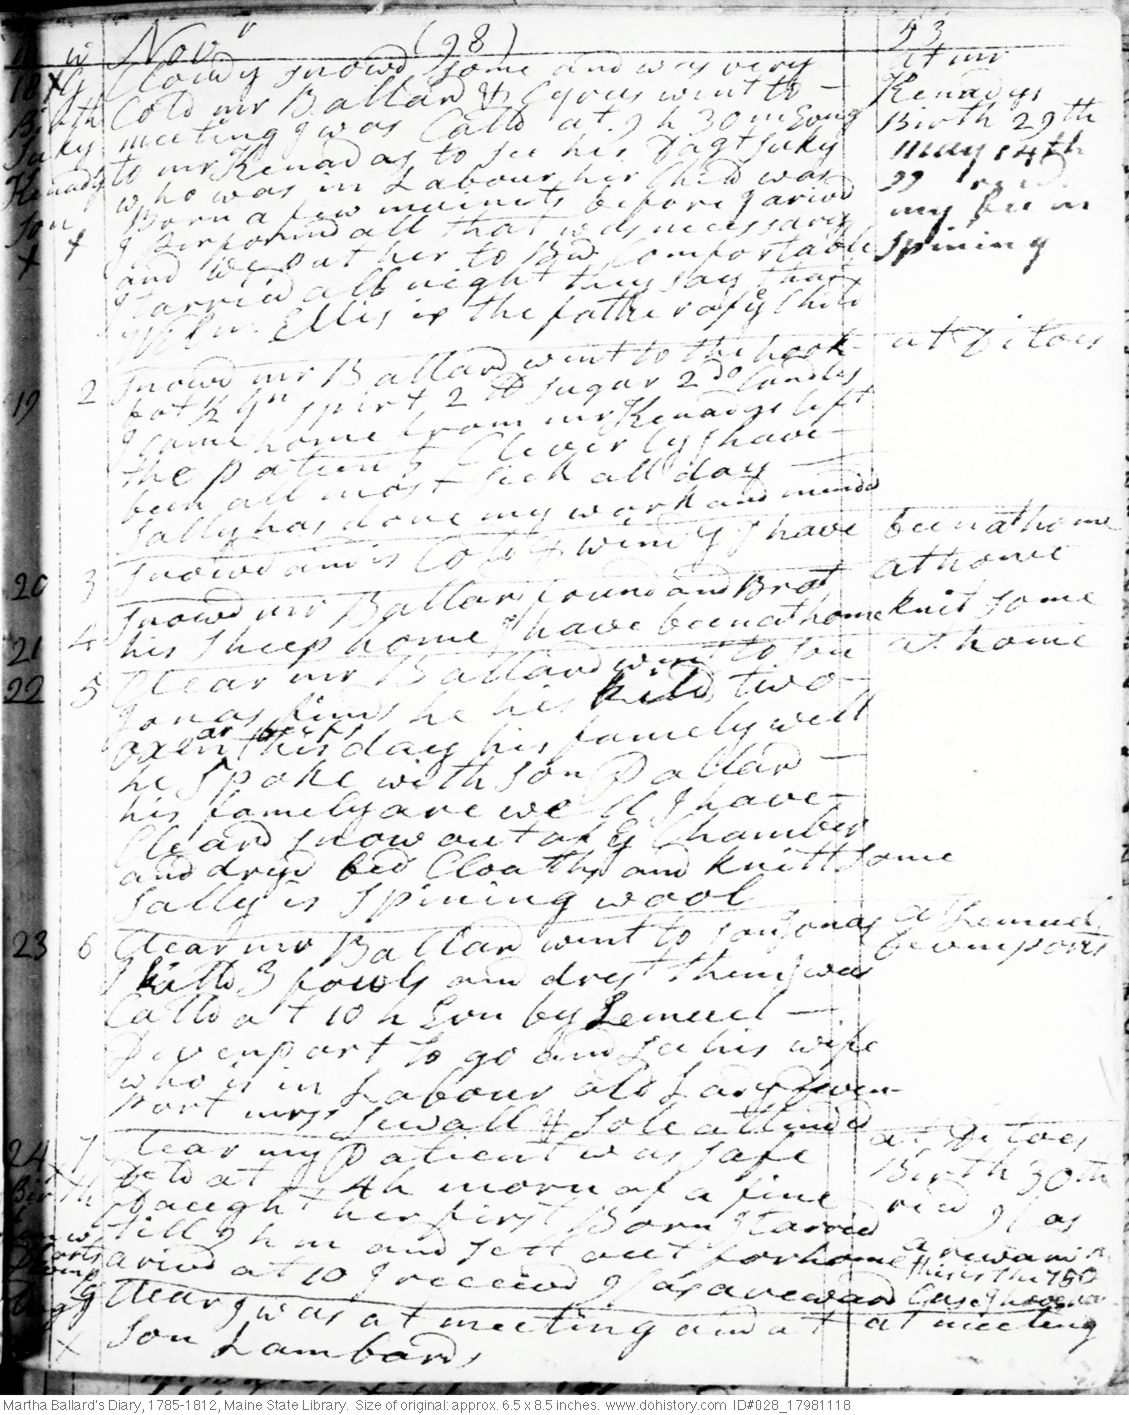 Novr (98) 53
18 G Cloudy snowd some and was very at mr
Cold mr Ballard & Cyrus went to – Kenadys
Birth meeting I was Calld at 9 h 30 m Evng Birth 29th
Suky to mr Kenadas to see his Dagt Suky may 14th
Kenadys who was in Labour her Child was 99
Son Born a few minuits before I arivd my fee in
x x I performd all that was necessary spining
and we put her to Bed Comfortable
I tarried all night they say that
Wilm Ellis is the father of ye Child
19 2 Snowd mr Ballard went to the hook at Ditoes
got ½ gn spirt 2 lb Sugar 2 do Candles
I came home from mr Kenadys left
the patient Cleverly I have –
been all most sick all day –
Sally has done my work and mindd
20 3 Snowd and is Cold & windy I have been at home
at home
21 4 Snowd mr Ballard found and Brot
his Sheep home I have been at home knit some
22 5 Clear mr Ballard went to son at home
Jonas finds he his killd two –
oxen this day his famely well
he Spoke with son Pollard –
his famely are well I have –
Cleard snow out of ye Chamber
and dryd bed Cloaths and knitt some
Sally is Spining wool
23 6 Clear mr Ballard went to son Jonas at Lemuel
I killd 3 fowls and drest them I was Devenports
Calld at 10 h Evn by Lemuel –
Devenport to go and see his wife
who is in Labour old Lady Deven-
port mrss Sewall & Sole attended
24 7 Clear my Patient was safe at Ditoes
x Dld at 4 h morn of a fine Birth 30th
Birth Daught her first Born I tarried recd 9/ as
till 9 h m and sett out for home a reward
arivd at 10 I receivd 9/ as a reward this is the 750
Case I have
G Clear I was at meeting and at at meeting
x son Lambards
Martha Ballard's Diary, 1785-1812, Maine State Library. Size of original: approx. 6.5 x 8.5 inches. www.dohistory.com ID#028_17981118